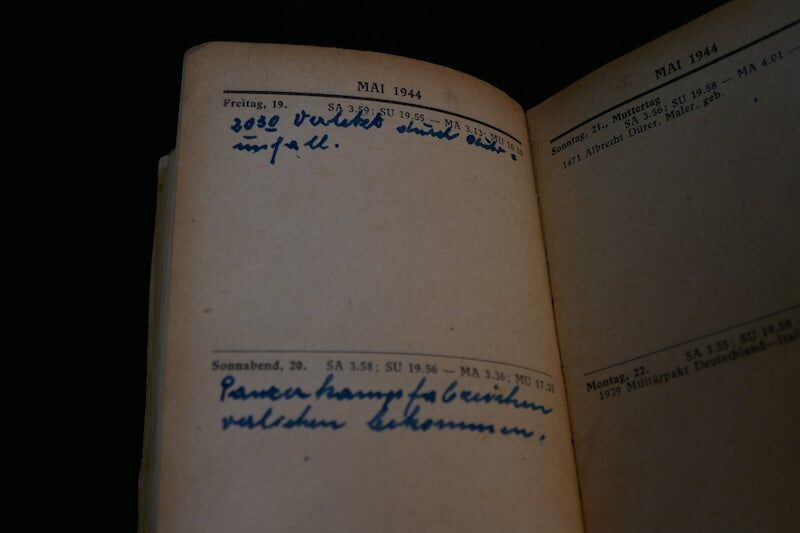 MAI 1944
Freitag, 19. SA 3.59; SU 19.55 — MA 3.13; MU 16.16
2030 Verletzt durch Auto =
unfall.
Sonnabend, 20. SA 3.58; SU 19.56 — MA 3.36; MU 17.31
Panzerkampfabzeichen
verliehen bekommen.
MAI 1944
Sonntag, 21., Muttertag
SA 3.56; SU 19.58 — MA 4.01 —
1471 Albrecht Dürer, Maler, geb.
Montag, 22. SA 3.55; SU 19.59
1939 Militärpakt Deutschland—Ital